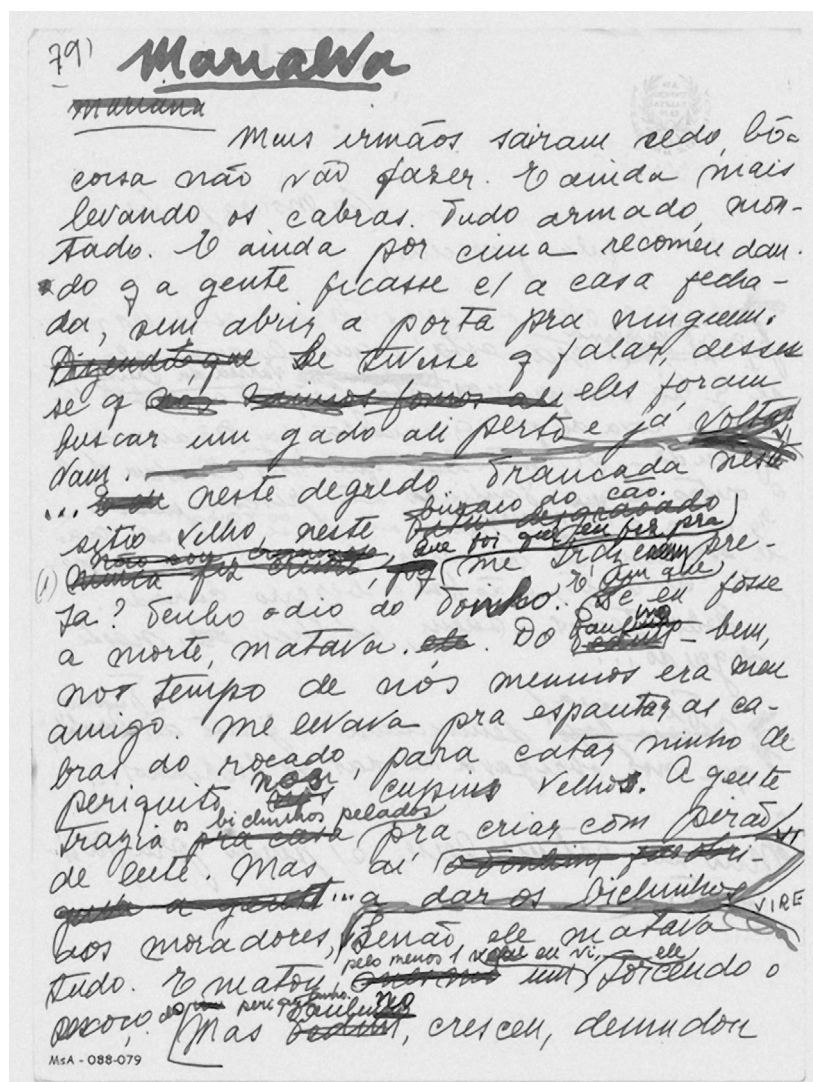 79)
Marialva
Mariana
Meus irmãos sairam cedo, bôa
coisa não vão fazer. E ainda mais
levando os cabras. Tudo armado, mon-
tado. E ainda por cima recomendan-
do q a gente ficasse c/ a casa fecha-
da, sem abrir a porta pra ninguem.
Dizendo que Se tivesse q falar, dissese
se q nós eles foram
buscar um gado ali perto e já volta
vam.
... neste degredo, trancada neste
sitio velho, neste buraco do cão.
não sou criminosa que foi que eu fiz pra
(1) nunca fiz crime, me pre-
sa? Tenho odio do Tonho. E Se eu fosse
a morte, matava. ele. Do Paulino - bem,
nos tempo de nós meninos era meu
amigo. Me levava pra espantar as ca-
bras do roçado, para catar ninho de
periquito nos cupins velhos. A gente
trazia os bichinhos pelados pra casa pra criar com pirão
de leite. Mas aí
a gente ...a dar os bichinhos
VIRE
aos moradores, Senão ele matava
tudo. E matou, pelo menos 1 eu vi, ele torcendo o
pescoço do periquitinho.
Mas Paulino, cresceu, demudou
MsA - 088-079